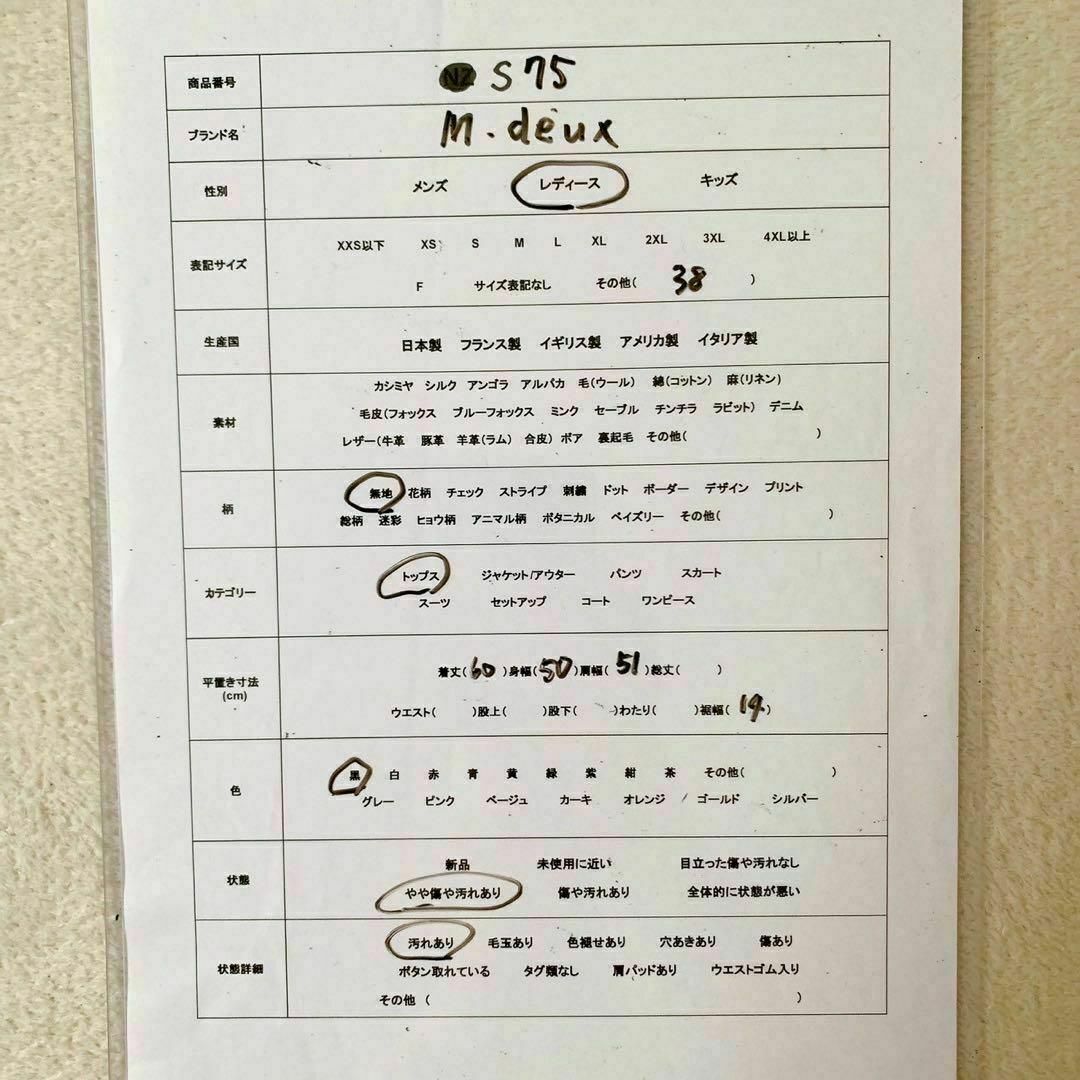 商品番号 NZ S75
ブランド名 M.deux
性別 メンズ レディース キッズ
表記サイズ XXS以下 XS S M L XL 2XL 3XL 4XL以上
F サイズ表記なし その他( 38 )
生産国 日本製 フランス製 イギリス製 アメリカ製 イタリア製
素材 カシミヤ シルク アンゴラ アルパカ 毛(ウール) 綿(コットン) 麻(リネン)
毛皮(フォックス ブルーフォックス ミンク セーブル チンチラ ラビット) デニム
レザー(牛革 豚革 羊革(ラム) 合皮) ボア 裏起毛 その他( )
柄 無地 花柄 チェック ストライプ 刺繍 ドット ボーダー デザイン プリント
総柄 迷彩 ヒョウ柄 アニマル柄 ボタニカル ペイズリー その他( )
カテゴリー トップス ジャケット/アウター パンツ スカート
スーツ セットアップ コート ワンピース
平置き寸法 (cm) 着丈( 60 )身幅( 50 )肩幅( 51 )総丈( )
ウエスト( )股上( )股下( )わたり( )裾幅( 19 )
色 黒 白 赤 青 黄 緑 紫 紺 茶 その他( )
グレー ピンク ベージュ カーキ オレンジ ゴールド シルバー
状態 新品 未使用に近い 目立った傷や汚れなし
やや傷や汚れあり 傷や汚れあり 全体的に状態が悪い
状態詳細 汚れあり 毛玉あり 色褪せあり 穴あきあり 傷あり
ボタン取れている タグ類なし 肩パッドあり ウエストゴム入り
その他 ( )